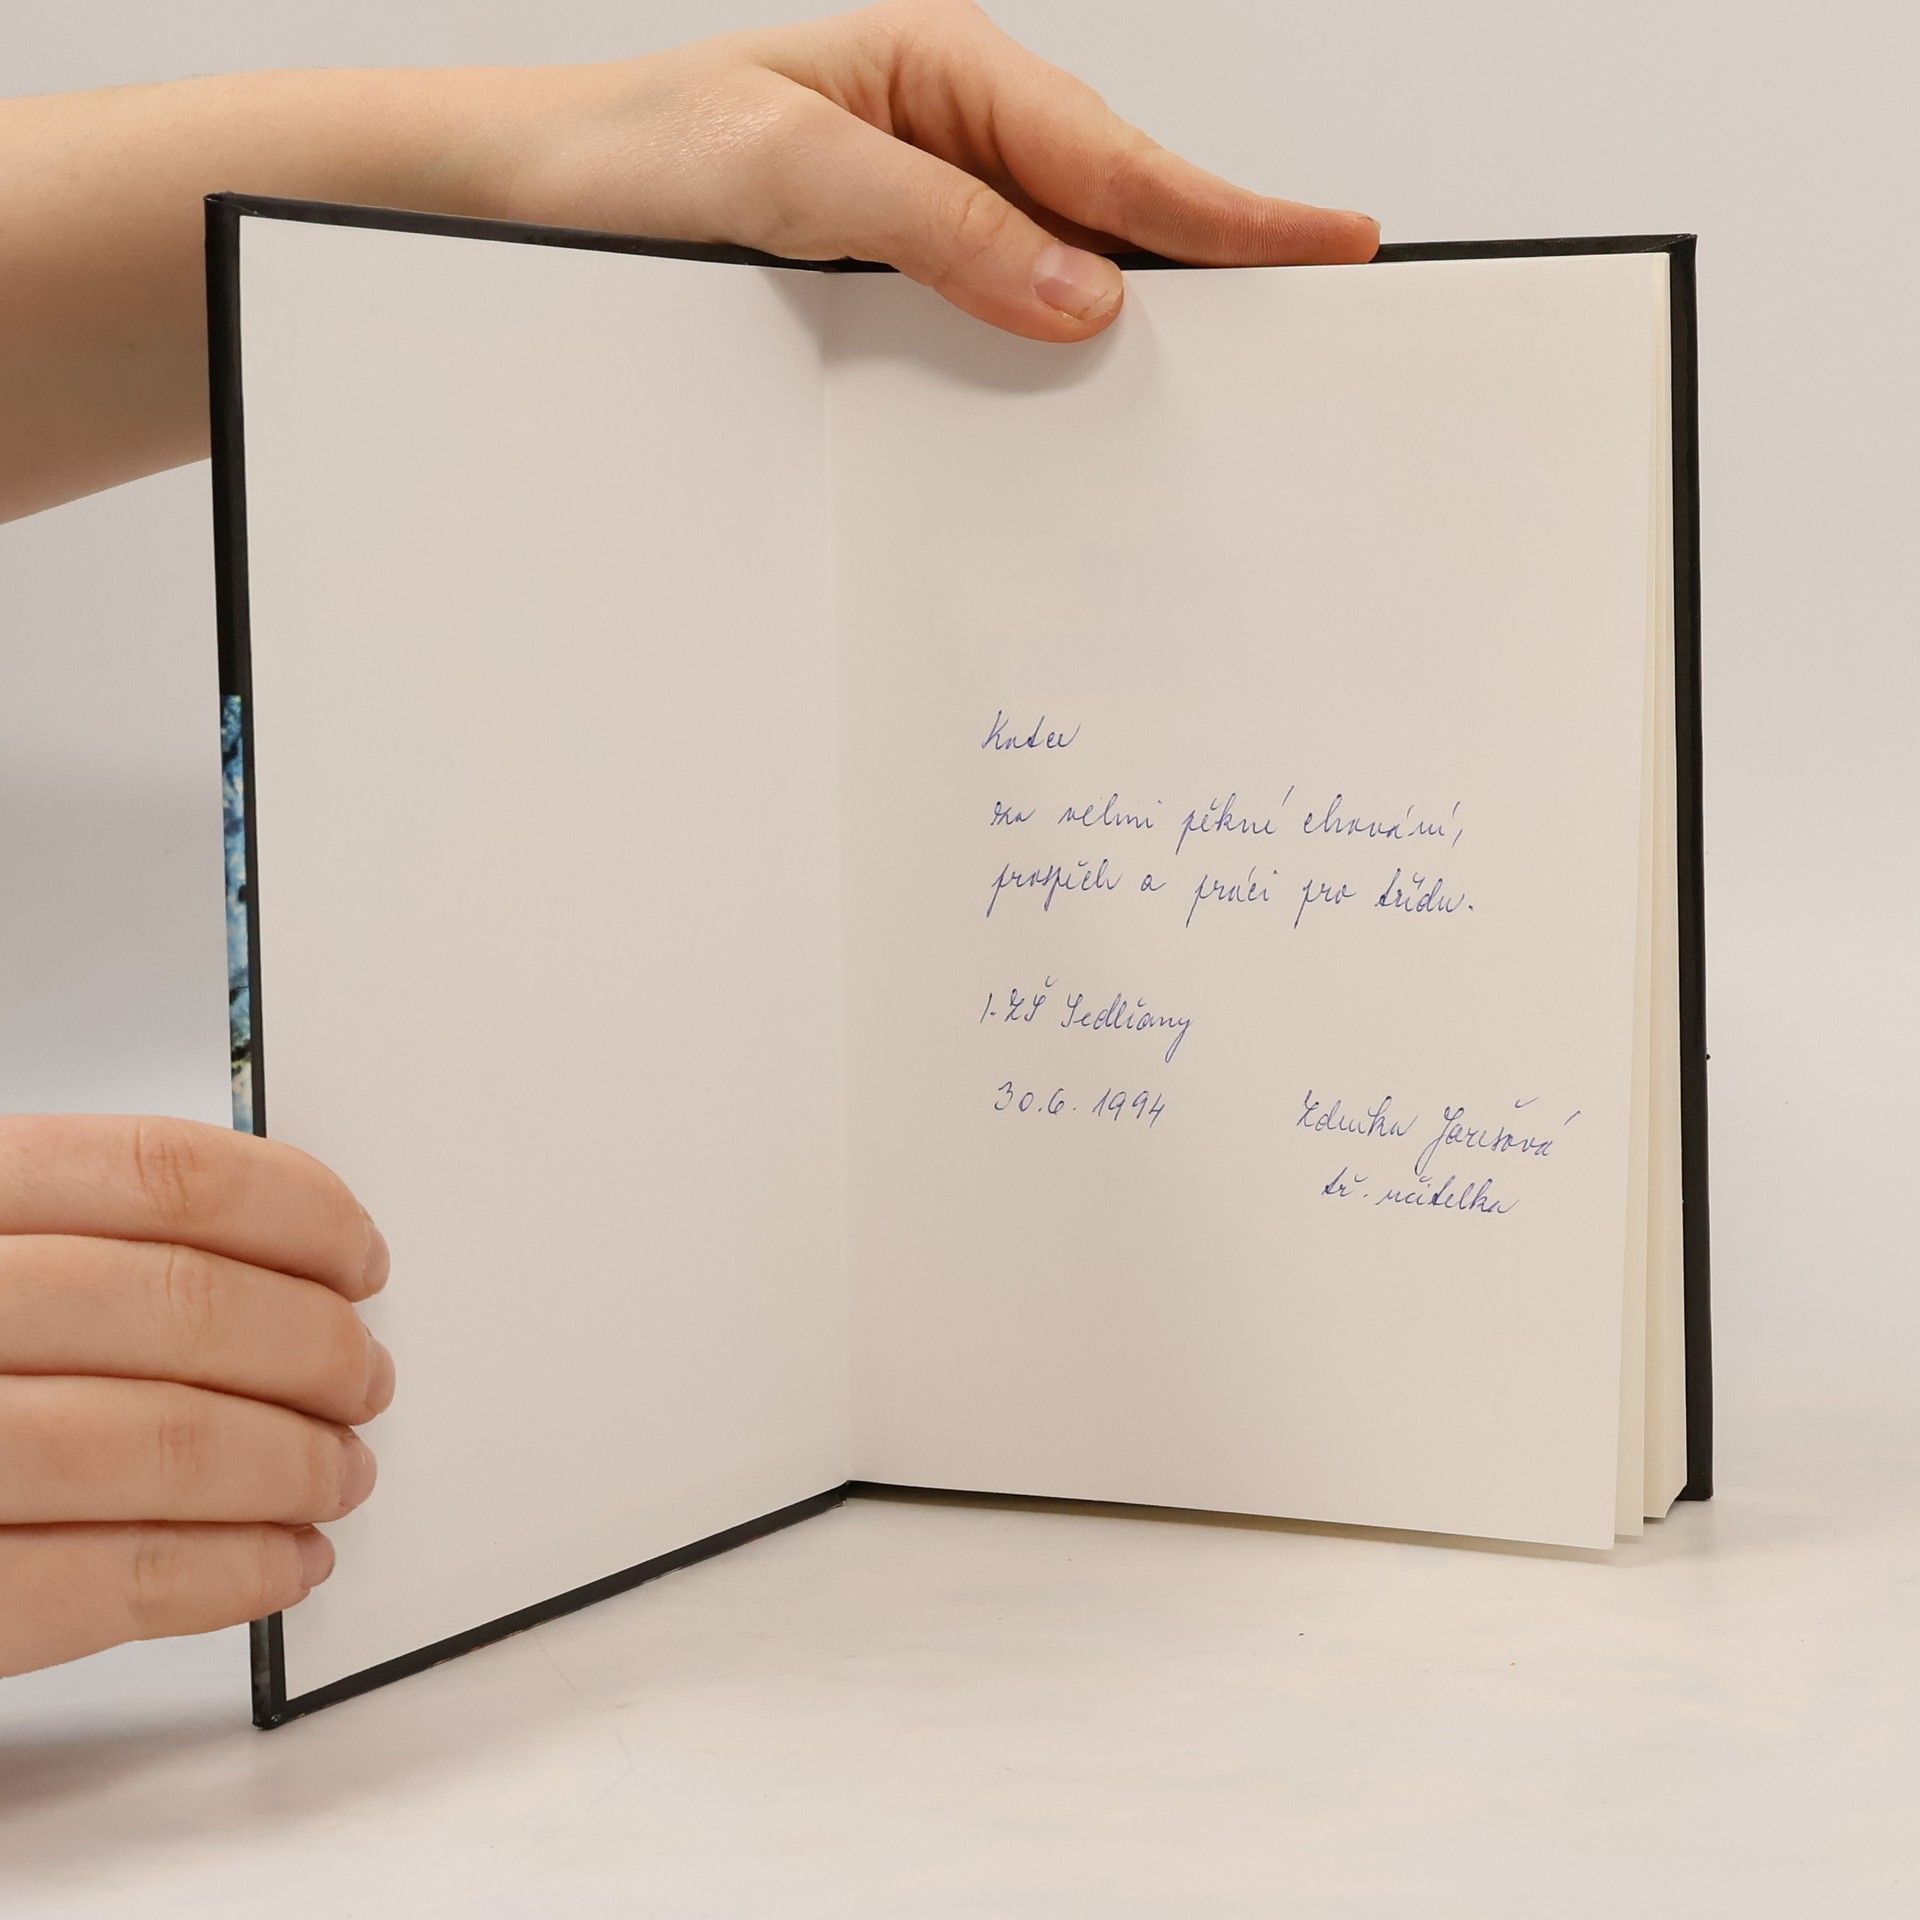 Katce
za velmi pěkné chování,
prospěch a práci pro třídu.
1. ZŠ Sedlčany
30.6. 1994
Zdenka Jarešová
tř. učitelka